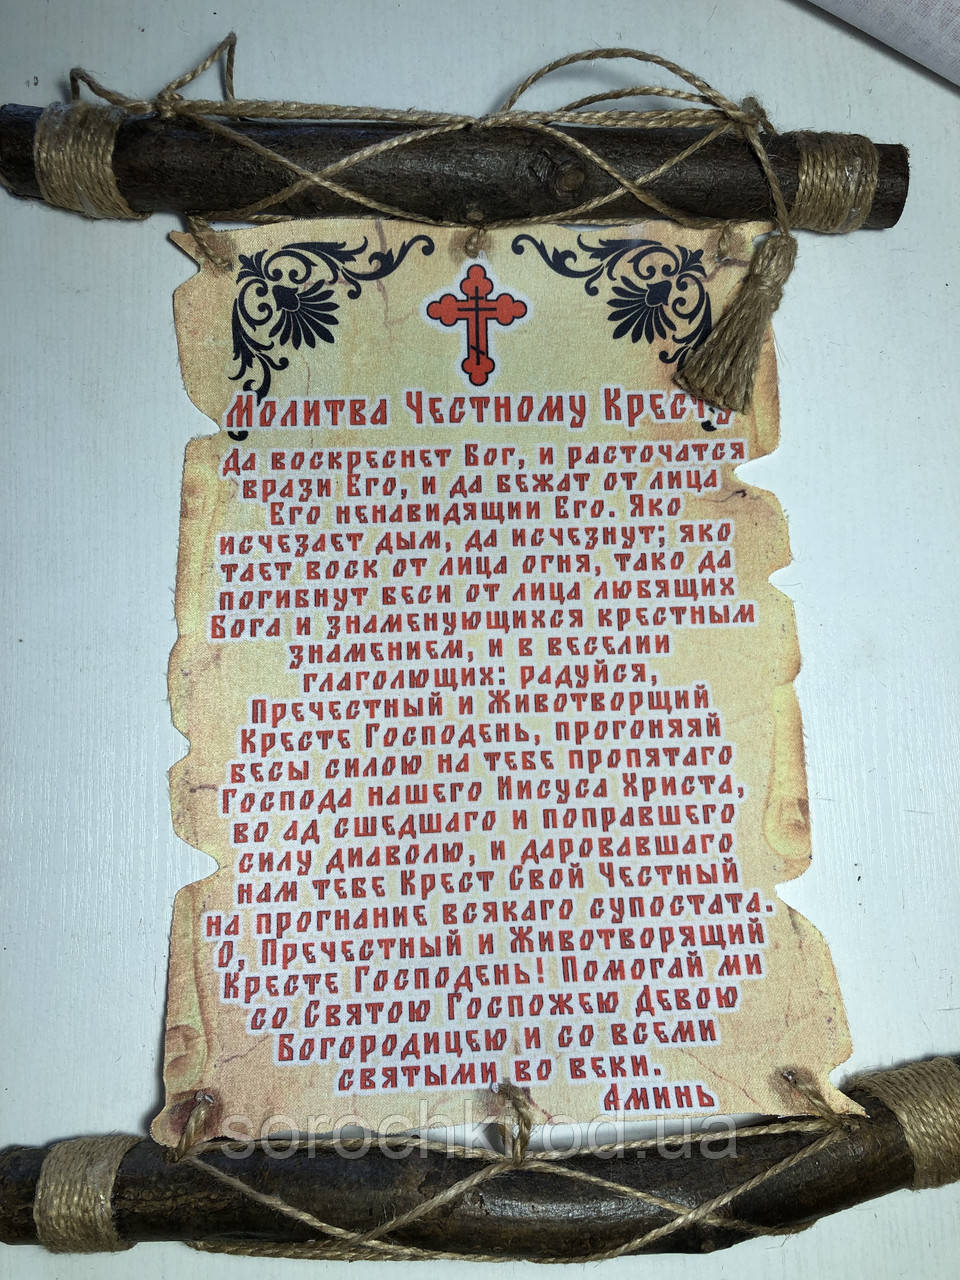 Молитва Честному Кресту
Да воскреснет Бог, и расточатся
врази Его, и да бежат от лица
Его ненавидящии Его. Яко
исчезает дым, да исчезнут; яко
тает воск от лица огня, тако да
погибнут беси от лица любящих
Бога и знаменующихся крестным
знамением, и в веселии
глаголющих: радуйся,
Пречестный и Животворщий
Кресте Господень, прогоняяй
бесы силою на тебе пропятаго
Господа нашего Иисуса Христа,
во ад сшедшаго и поправшего
силу диаволю, и даровавшаго
нам тебе Крест Свой Честный
на прогнание всякаго супостата.
О, Пречестный и Животворящий
Кресте Господень! Помогай ми
со Святою Госпожею Девою
Богородицею и со всеми
святыми во веки.
Аминь
sorochki.od.ua